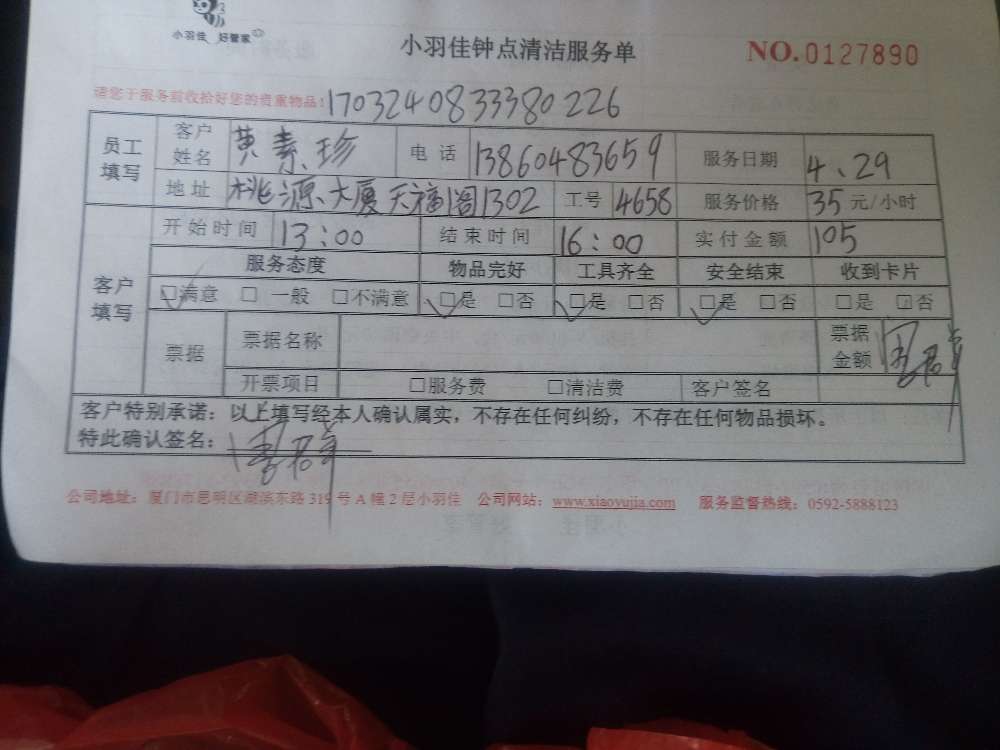 小羽佳 好管家
小羽佳钟点清洁服务单 NO.0127890
请您于服务前收拾好您的贵重物品! 1703240833380226
员工填写 客户姓名 黄素珍 电话 13860483659 服务日期 4、29
地址 桃源大厦天福阁1302 工号 4658 服务价格 35元/小时
客户填写 开始时间 13:00 结束时间 16:00 实付金额 105
服务态度 物品完好 工具齐全 安全结束 收到卡片
☑满意 □一般 □不满意 ☑是 □否 ☑是 □否 ☑是 □否 □是 □否
票据 票据名称 票据金额
开票项目 □服务费 □清洁费 客户签名
客户特别承诺:以上填写经本人确认属实,不存在任何纠纷,不存在任何物品损坏。
特此确认签名:
公司地址:厦门市思明区湖滨东路319号A幢2层小羽佳 公司网站:www.xiaoyujia.com 服务监督热线:0592-5888123